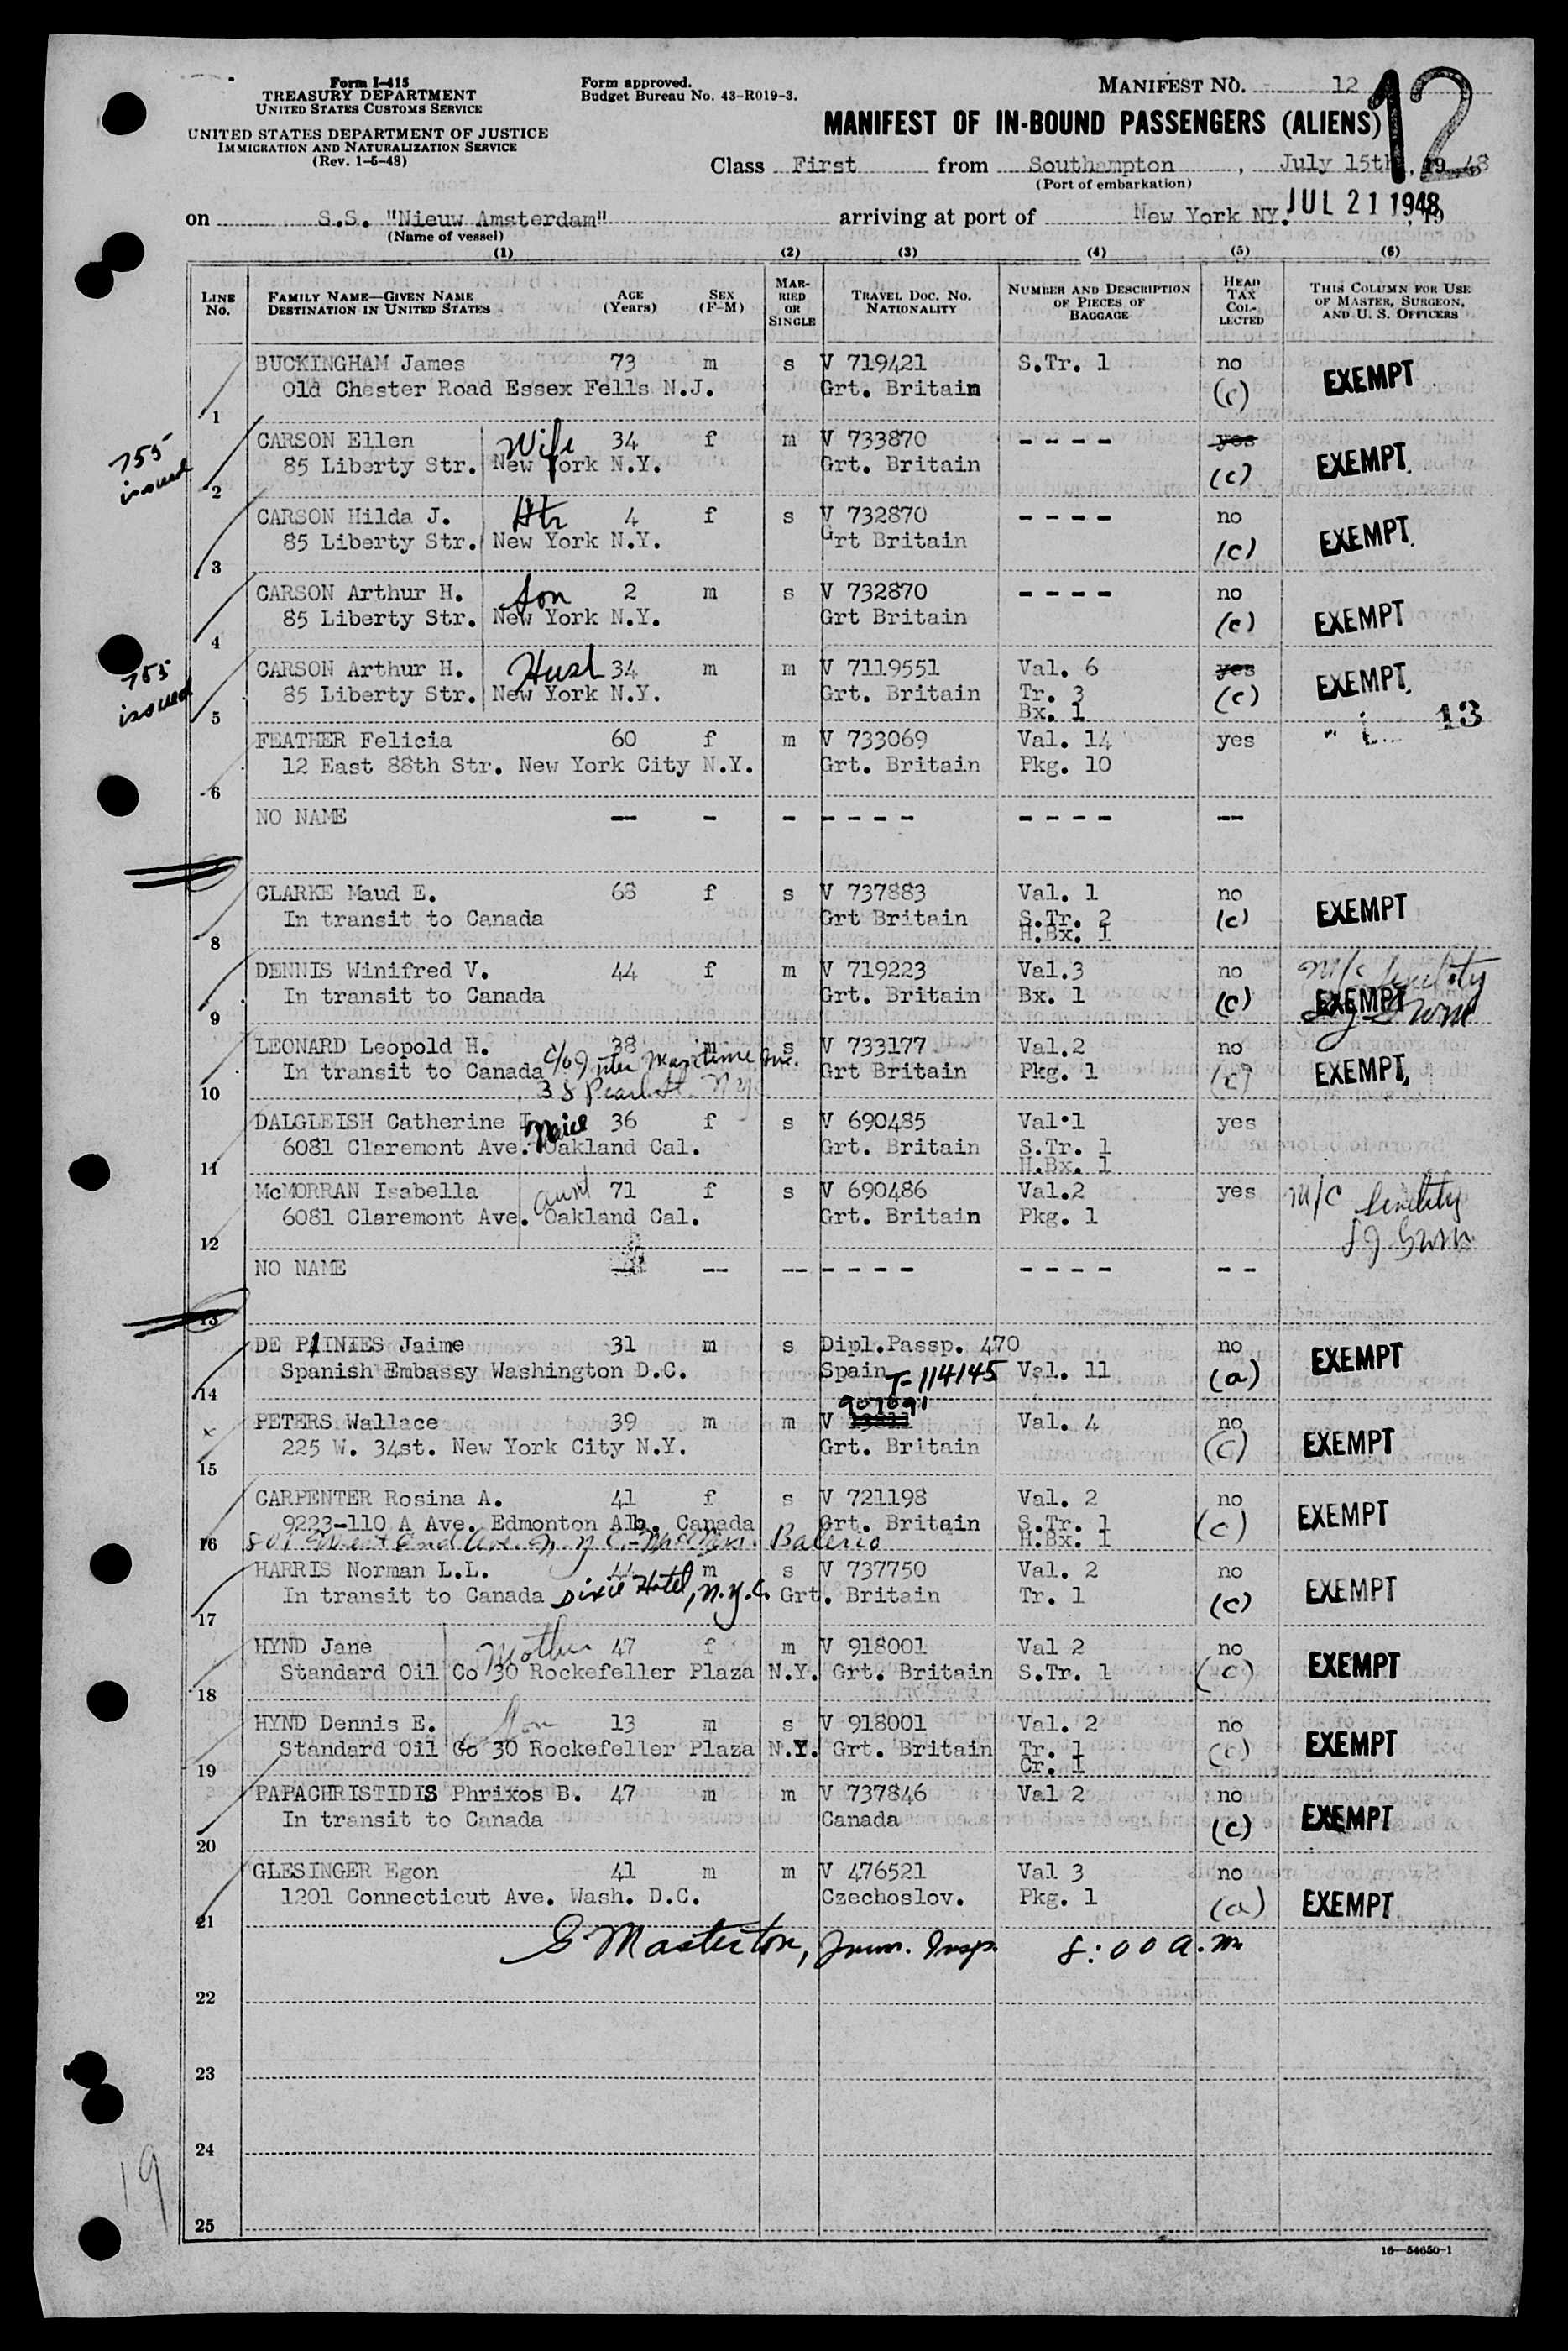 Form I-415
TREASURY DEPARTMENT
UNITED STATES CUSTOMS SERVICE
UNITED STATES DEPARTMENT OF JUSTICE
IMMIGRATION AND NATURALIZATION SERVICE
(Rev. 1-5-48)
Form approved.
Budget Bureau No. 43-R019-3.
MANIFEST NO. 12
12
MANIFEST OF IN-BOUND PASSENGERS (ALIENS)
Class First from Southampton, July 15th, 1948
(Port of embarkation)
on S.S. "Nieuw Amsterdam" arriving at port of New York NY. JUL 21 1948, 19
(Name of vessel)
(1) (2) (3) (4) (5) (6)
LINE NO. FAMILY NAME—GIVEN NAME DESTINATION IN UNITED STATES AGE (YEARS) SEX (F-M) MARRIED OR SINGLE TRAVEL DOC. NO. NATIONALITY NUMBER AND DESCRIPTION OF PIECES OF BAGGAGE HEAD TAX COLLECTED THIS COLUMN FOR USE OF MASTER, SURGEON, AND U. S. OFFICERS
BUCKINGHAM James 73 m s V 719421 S.Tr. 1 no
Old Chester Road Essex Fells N.J. Grt. Britain (c) EXEMPT
1
755 issued
CARSON Ellen Wife 34 f m V 733870 - - - - yes
85 Liberty Str. New York N.Y. Grt. Britain (c) EXEMPT
2
CARSON Hilda J. Dtr 4 f s V 732870 - - - - no
85 Liberty Str. New York N.Y. Grt Britain (c) EXEMPT
3
CARSON Arthur H. Son 2 m s V 732870 - - - - no
85 Liberty Str. New York N.Y. Grt Britain (c) EXEMPT
4
755 issued
CARSON Arthur H. Husb 34 m m V 7119551 Val. 6 yes
85 Liberty Str. New York N.Y. Grt. Britain Tr. 3 (c) EXEMPT
Bx. 1
5
13
FEATHER Felicia 60 f m V 733069 Val. 14 yes
12 East 88th Str. New York City N.Y. Grt. Britain Pkg. 10
6
NO NAME -- - - - - - - - - - - --
CLARKE Maud E. 68 f s V 737883 Val. 1 no
In transit to Canada Grt Britain S.Tr. 2 (c) EXEMPT
H.Bx. 1
8
DENNIS Winifred V. 44 f m V 719223 Val.3 no M/C Senility
In transit to Canada Grt. Britain Bx. 1 (c) EXEMPT
9
LEONARD Leopold H. 38 m s V 733177 Val.2 no
In transit to Canada c/o Inter Maritime Inc. Grt Britain Pkg. 1 (c) EXEMPT
38 Pearl St. N.Y.
10
DALGLEISH Catherine I. Neice 36 f s V 690485 Val.1 yes
6081 Claremont Ave. Oakland Cal. Grt. Britain S.Tr. 1
H.Bx. 1
11
McMORRAN Isabella aunt 71 f s V 690486 Val.2 yes M/C Senility
6081 Claremont Ave. Oakland Cal. Grt. Britain Pkg. 1
12
NO NAME -- -- -- - - - - - - - - - -
13
DE PAINIES Jaime 31 m s Dipl.Passp. 470 no
Spanish Embassy Washington D.C. Spain T-114145 Val. 11 (a) EXEMPT
14
907691
PETERS Wallace 39 m m V Val. 4 no
225 W. 34st. New York City N.Y. Grt. Britain (C) EXEMPT
15
CARPENTER Rosina A. 41 f s V 721198 Val. 2 no
9223-110 A Ave. Edmonton Alb. Canada Grt. Britain S.Tr. 1 (c) EXEMPT
801 West End Ave. N.Y.C. Balerio H.Bx. 1
16
HARRIS Norman L.L. 44 m s V 737750 Val. 2 no
In transit to Canada Dixie Hotel, N.Y.C. Grt. Britain Tr. 1 (c) EXEMPT
17
HYND Jane Mother 47 f m V 918001 Val 2 no
Standard Oil Co 30 Rockefeller Plaza N.Y. Grt. Britain S.Tr. 1 (c) EXEMPT
18
HYND Dennis E. Son 13 m s V 918001 Val. 2 no
Standard Oil Co 30 Rockefeller Plaza N.Y. Grt. Britain Tr. 1 (c) EXEMPT
Cr. 1
19
PAPACHRISTIDIS Phrixos B. 47 m m V 737846 Val 2 no
In transit to Canada Canada (c) EXEMPT
20
GLESINGER Egon 41 m m V 476521 Val 3 no
1201 Connecticut Ave. Wash. D.C. Czechoslov. Pkg. 1 (a) EXEMPT
21
G Masterton, Imm. Insp. 8:00 a.m
22
23
24
19
25
16—54650-1